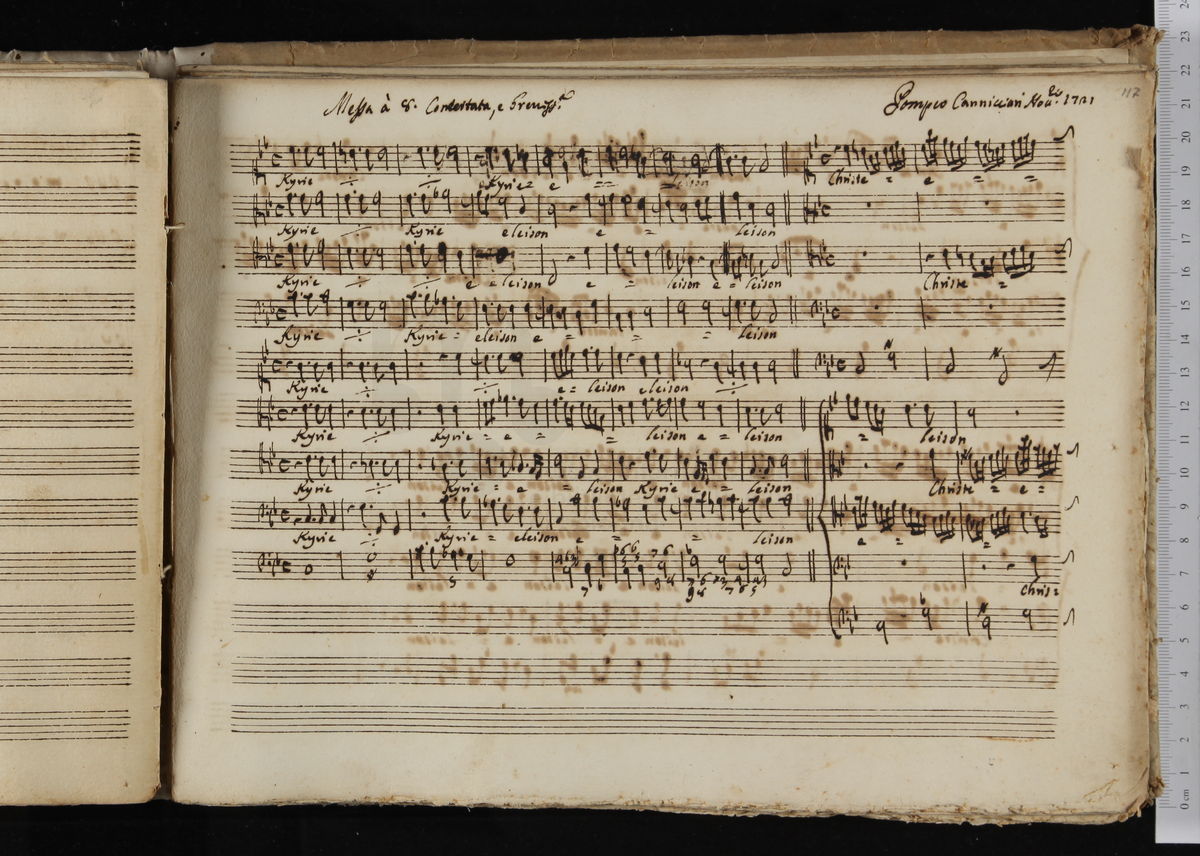 Messa à 8. Concertata, e breviss.ª
Pompeo Canniciari Nov.re 1721
117
Kyrie ·/· ·/· Kyrie = e = = leison Christe = e = =
Kyrie ·/· Kyrie eleison e = leison
Kyrie ·/· ·/· e eleison e = leison e = leison Christe =
Kyrie ·/· Kyrie = eleison e = = = leison
Kyrie ·/· ·/· e = leison eleison ·/·
Kyrie ·/· Kyrie = e = = leison e = leison = leison
Kyrie ·/· Kyrie = e = leison Kyrie e = leison Christe = e =
Kyrie ·/· Kyrie = eleison e = leison e = =
Chris=